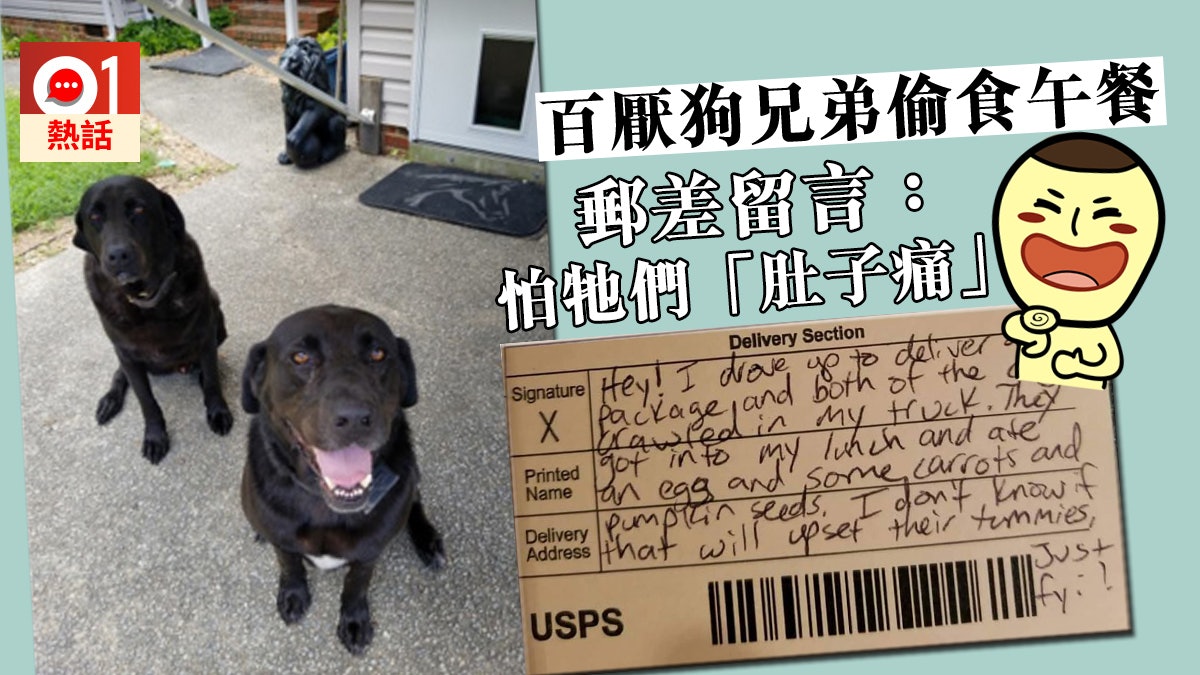 01
熱話
百厭狗兄弟偷食午餐
郵差留言：
怕牠們「肚子痛」
Delivery Section
Signature
X
Hey! I drove up to deliver
package and both of the
crawled in my truck. They
got into my lunch and ate
Printed
Name
an egg and some carrots and
pumpkin seeds. I don't know if
Delivery
Address
that will upset their tummies,
Just
fyi!
USPS